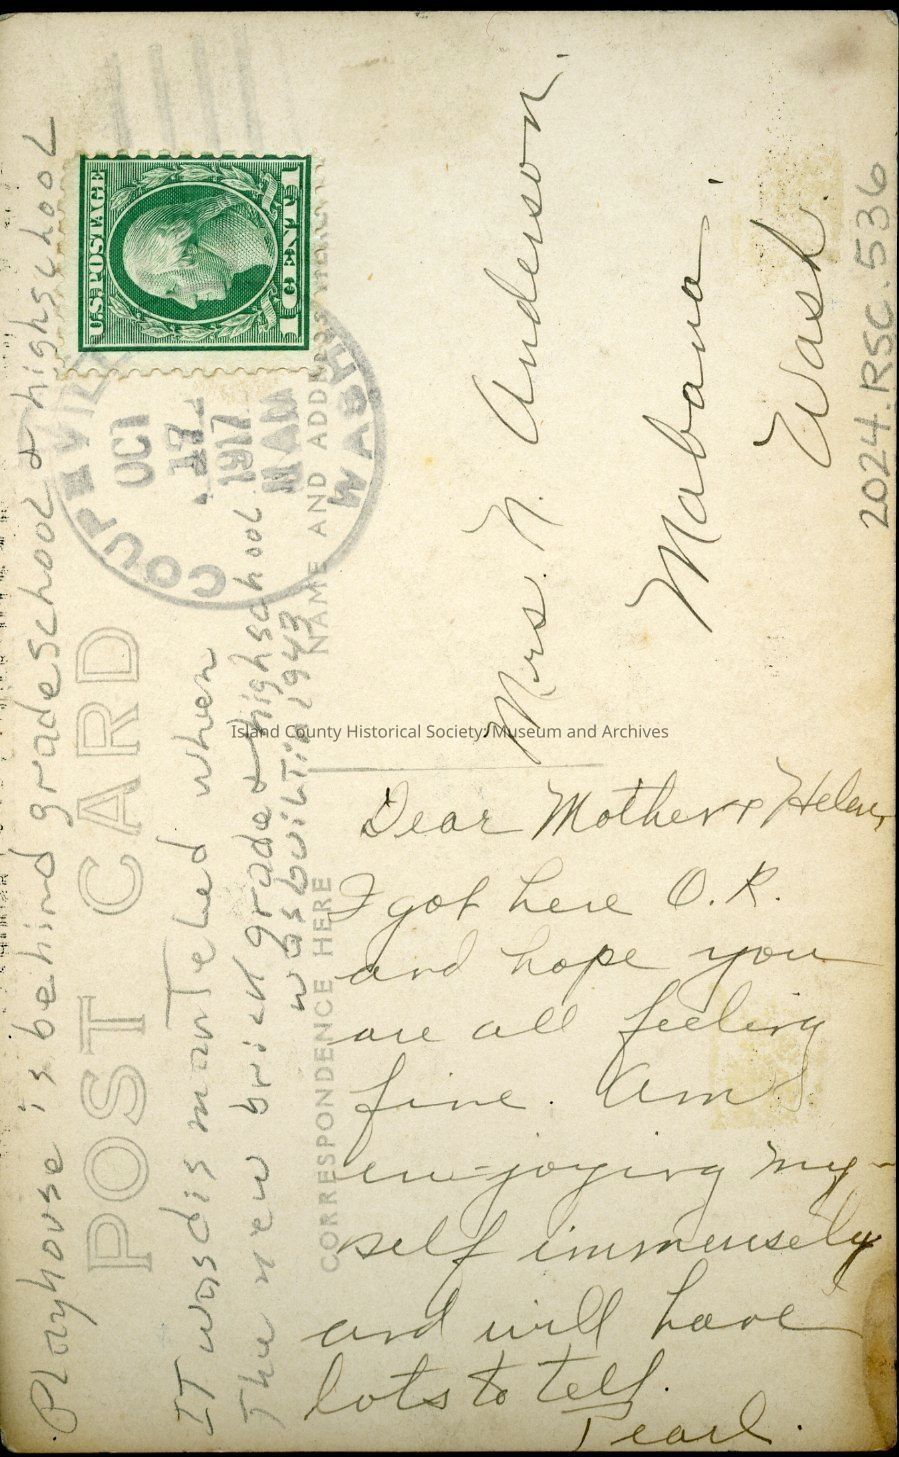 Playhouse is behind gradeschool & highschool
POST CARD
IT was dismanTeled when
The new brick grade & highschool
was builT in 1943
CORRESPONDENCE HERE
NAME AND ADDRESS HERE
U.S. POSTAGE
1 CENT 1
COUPEVILLE
OCT
17
1917
WASH
Mrs. N. Anderson.
Mabana.
Wash.
2024.RSC.536
Island County Historical Society, Museum and Archives
Dear Mother & Helen,
I got here O.K.
and hope you
are all feeling
fine. Am
en-joying my-
self immensely
and will have
lots to tell.
Pearl.